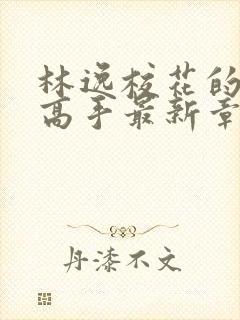 林逸校花的
高手最新章
丹漆不文